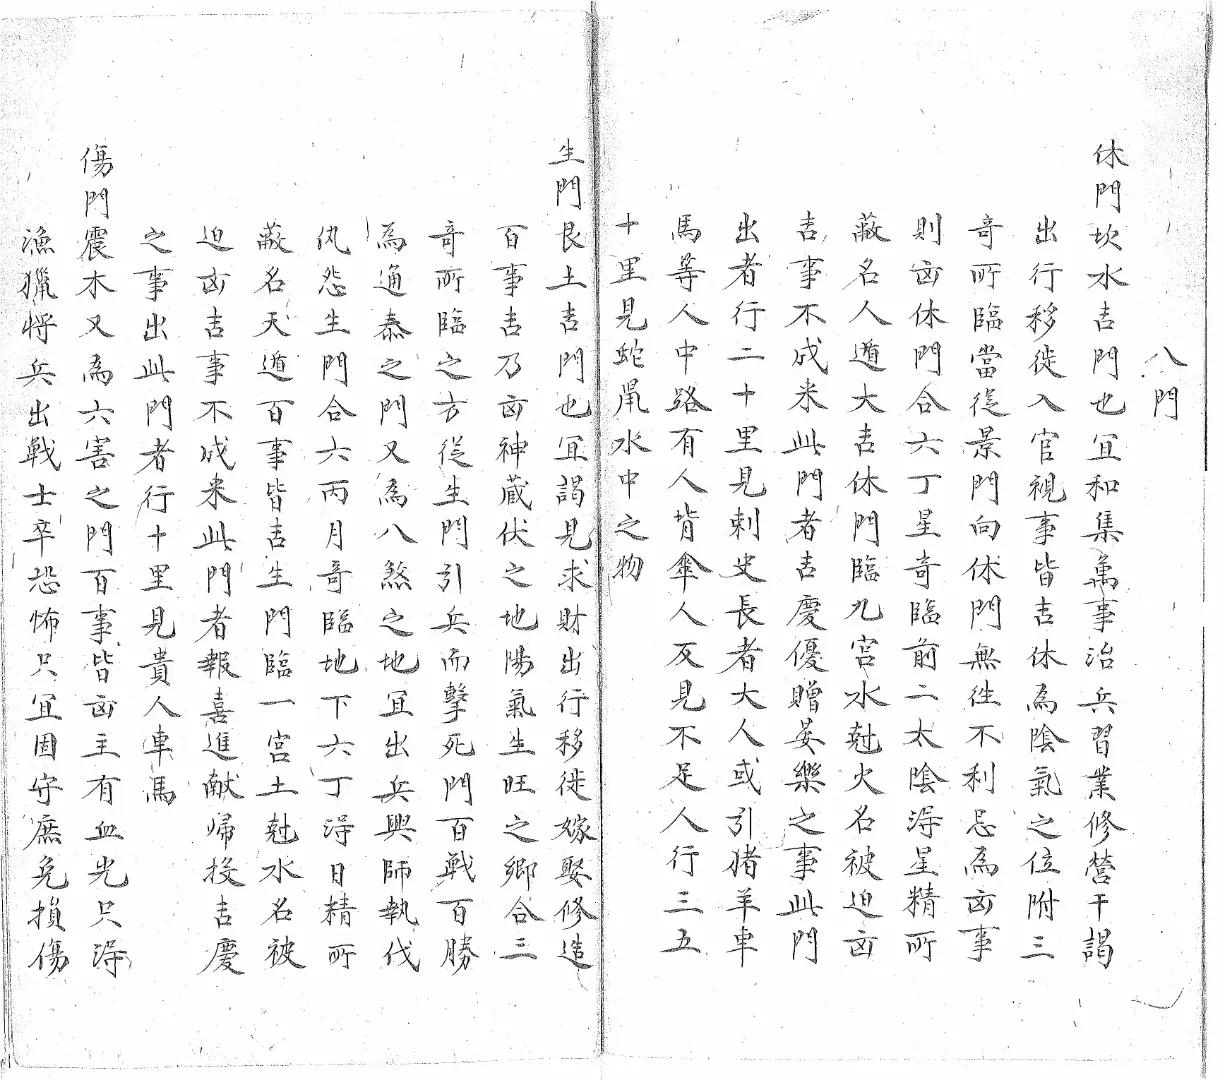 八門
休門坎水吉門也宜和集萬事治兵習業修營干謁
出行移徙入官視事皆吉休為陰氣之位附三
奇所臨當從景門向休門無往不利忌為凶事
則凶休門合六丁星奇臨前二太陰得星精所
蔽名人遁大吉休門臨九宮水尅火名被迫凶
吉事不成来此門者吉慶優贈宴樂之事此門
出者行二十里見刺史長者大人或引猪羊車
馬等人中路有人背傘人反見不足人行三五
十里見蛇鼠水中之物
生門艮土吉門也宜謁見求財出行移徙嫁娶修造
百事吉乃凶神藏伏之地陽氣生旺之鄉合三
奇所臨之方從生門引兵而擊死門百戰百勝
為通泰之門又為八煞之地宜出兵興師執伐
仇怨生門合六丙月奇臨地下六丁得日精所
蔽名天遁百事皆吉生門臨一宮土尅水名被
迫凶吉事不成来此門者報喜進献帰投吉慶
之事出此門者行十里見貴人車馬
傷門震木又為六害之門百事皆凶主有血光只得
漁獵将兵出戰士卒恐怖只宜固守庶免損傷